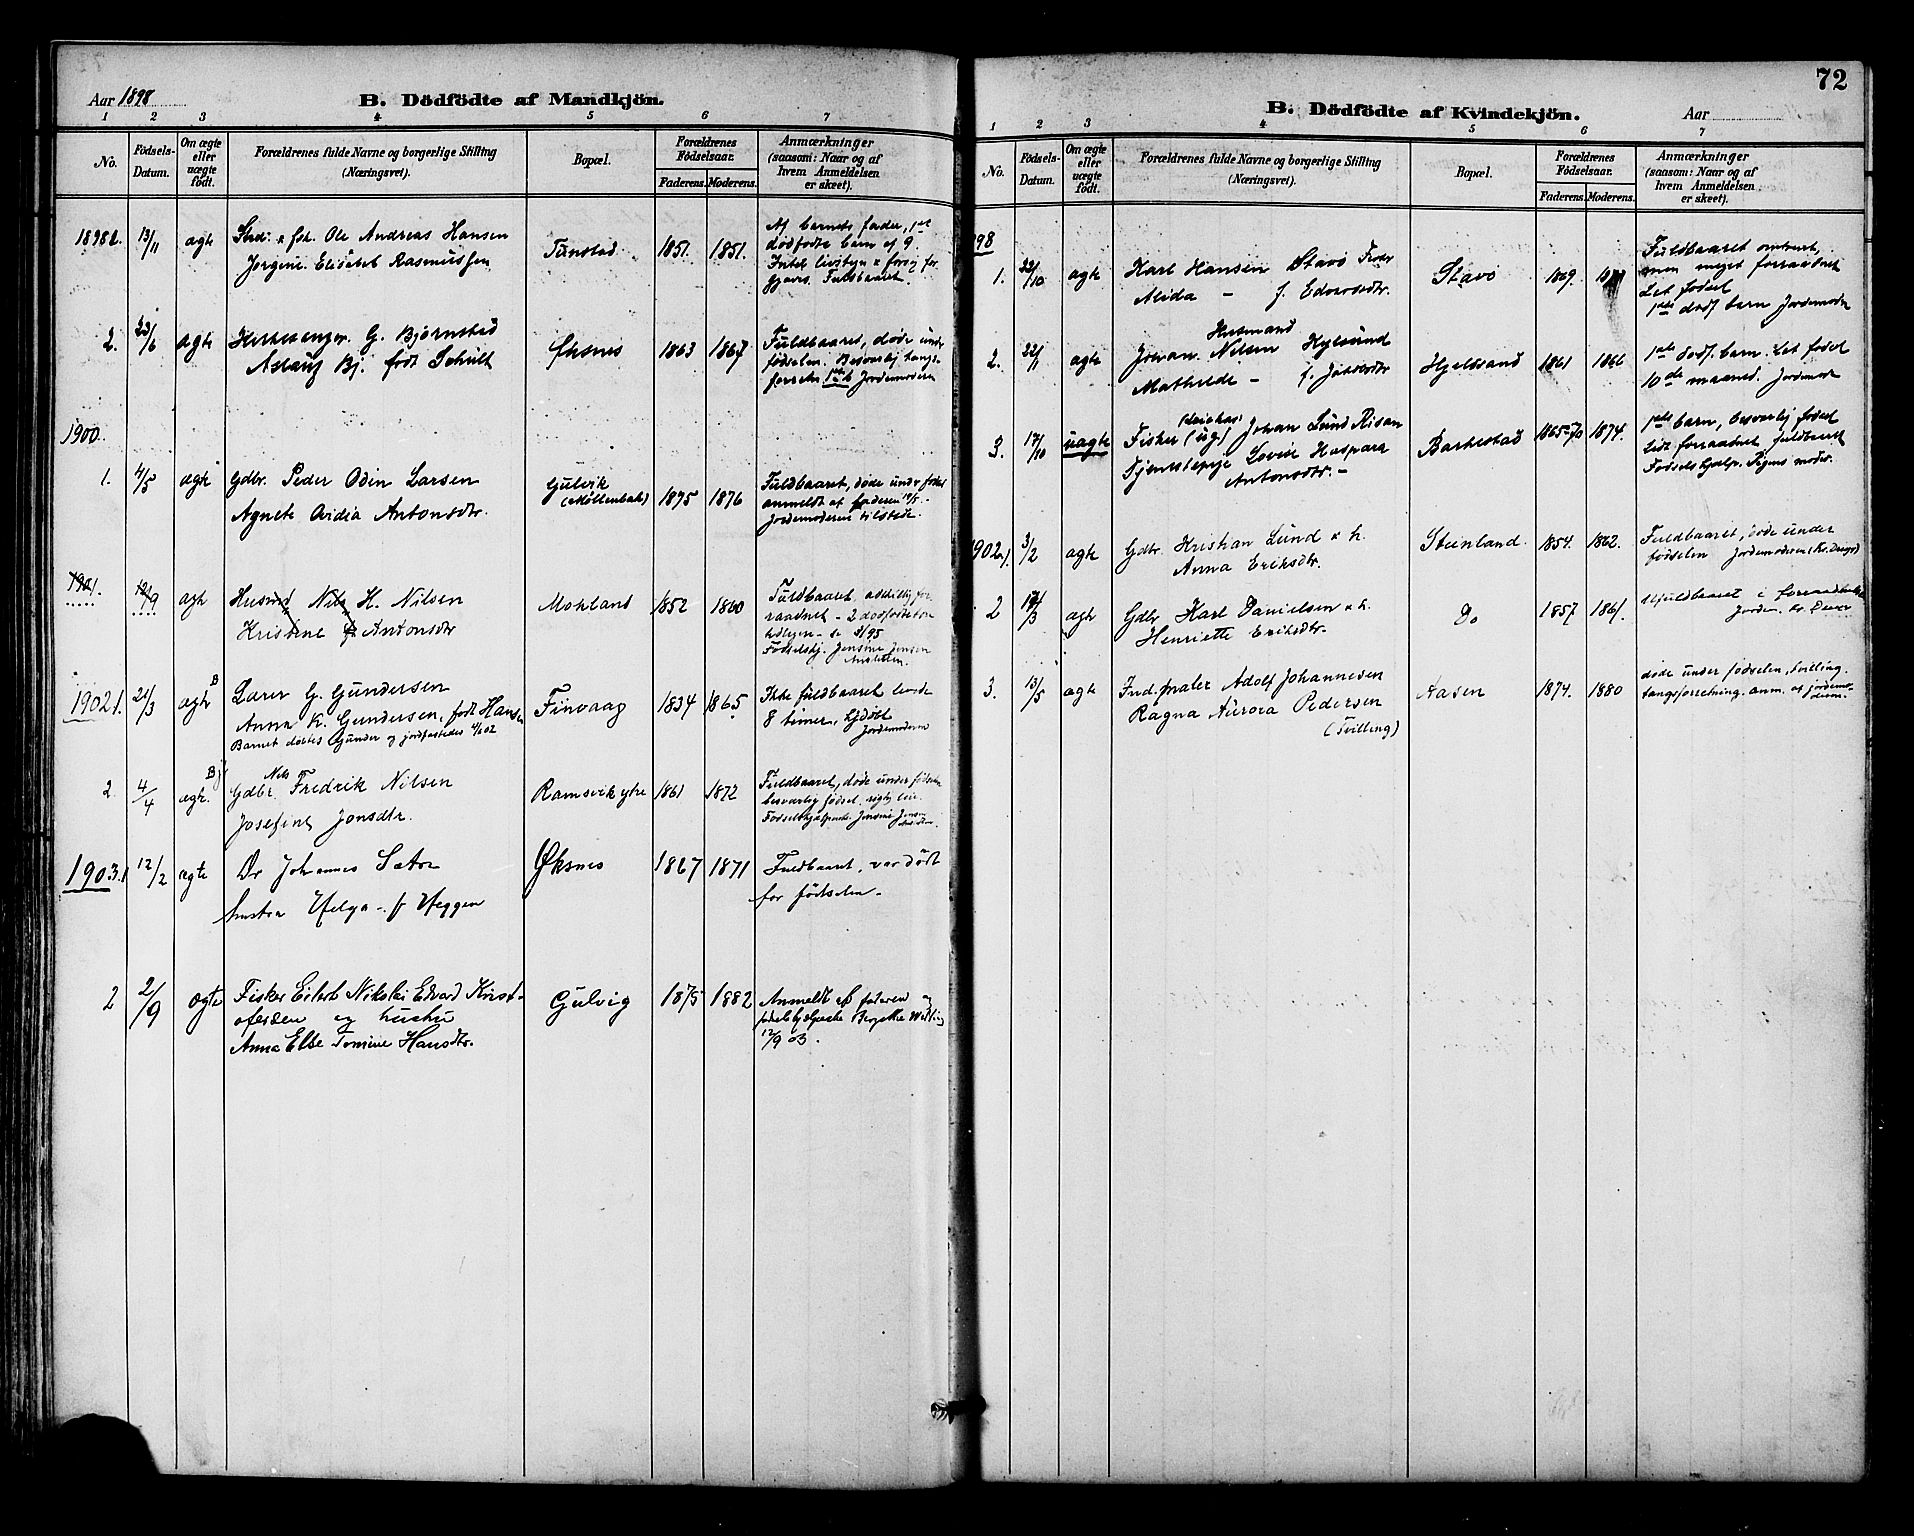 Aar 1898
B. Dödfödte af Mandkjön.
1 2 3 4 5 6 7
No.
Födsels-
Datum.
Om ægte
eller
uægte
födt.
Forældrenes fulde Navne og borgerlige Stilling
(Næringsvei).
Bopæl.
Forældrenes
Födselsaar.
Faderens. Moderens.
Anmærkninger
(saasom: Naar og af
hvem Anmeldelsen
er skeet).
13/11 ægte Ole Andreas Hansen Tinstad 1851. 1851. Af barnets fader, 1ste
Jorgine Elisabet Rasmussen
dødfødte barn af 9.
Fuldbaaret.
2. 23/6 ægte Kirkesanger G. Bjørnstad Øksnes 1863 1867 Fuldbaaret, døde und.
Aslaug Bj. født Schult
fødselen.
Jordemoderen
1900.
1. 4/5 ægte Gdbr. Peder Odin Larsen Gulvik 1875 1876 Fuldbaaret, døde und.
Agnete Ovidia Antonsdtr. (Møllenbak)
anmeldt af faderen
Jordemoderen tilstede.
1901. 12/9 ægte Husmd Nils H. Nilsen Mohland 1852 1860 Fuldbaaret
Kristine f. Antonsdtr
raadnet - 2 dødfødte
Jensine Jensen
1902 1. 21/3 ægte Lærer G. Gundersen Finvaag 1834 1865 Ikke fuldbaaret levede
Anna K. Gundersen, født Hansen
8 timer, hjdøbt
Barnet døbtes Gunder og jordfæstedes
Jordemoderen
2. 4/4 ægte. Gdbr. Nils Fredrik Nilsen Ramsvik ytre 1861 1872 Fuldbaaret, døde under fødselen
Josefine Jonsdtr.
besværlig fødsel.
Fødselshjælperske Jensine Jensen
1903. 1 12/2 ægte Dr Johannes Sætre Øksnes 1867 1871 Fuldbaaret, var dødt
hustru Helga - f. Heggen
før fødselen.
2 2/9 ægte Fisker Eilert Nikolai Edvard Krist- Gulvig 1875 1882 Anmeldt af faderen og
ofersen og hustru
fødselshjælperske
Anna Else Tomine Hansdtr.
12/9 03.
72
B. Dödfödte af Kvindekjön.
Aar
1 2 3 4 5 6 7
No.
Födsels-
Datum.
Om ægte
eller
uægte
födt.
Forældrenes fulde Navne og borgerlige Stilling
(Næringsvei).
Bopæl.
Forældrenes
Födselsaar.
Faderens. Moderens.
Anmærkninger
(saasom: Naar og af
hvem Anmeldelsen
er skeet).
98
1. 22/10 ægte Karl Hansen Stavø Stavø 1869 Fuldbaaret omtrent,
Alida - f. Edvardsdtr.
men meget forraadnet
Let fødsel
1ste dødf barn Jordemoder
2. 22/1 ægte Husmand
Johan Nilsen Hjelsand Hjeldsand 1861 1866 1ste dødf. barn. Let fødsel
Mathilde - f. Jakobsdtr
10de maaned. Jordemoder
3. 17/10 uægte Fisker (ug) Johan Lund Risan Barkestad 1865-70 1874. 1ste barn, besværlig fødsel
Tjenestepige Lovise Kaspara
Lidt forraadnet fuldbaaret
Antonsdtr. -
Fødselshjælp. Pigens moder.
1902 1. 3/2 ægte Gdbr. Kristian Lund & h. Steinland 1854. 1862. Fuldbaaret, døde under
Anna Eriksdtr.
fødselen Jordemoderen
2 ægte Gdbr Karl Danielsen & h. Do 1857 1861. Ufuldbaaret i forraadnelse
Henriette Eriksdtr.
3. 13/5 ægte Ind. maler Adolf Johannesen Aasen 1874. 1880 døde under fødselen, tvilling.
Ragna Aurora Pedersen
tangforretning. anm. af jordemo-
(Tvilling)